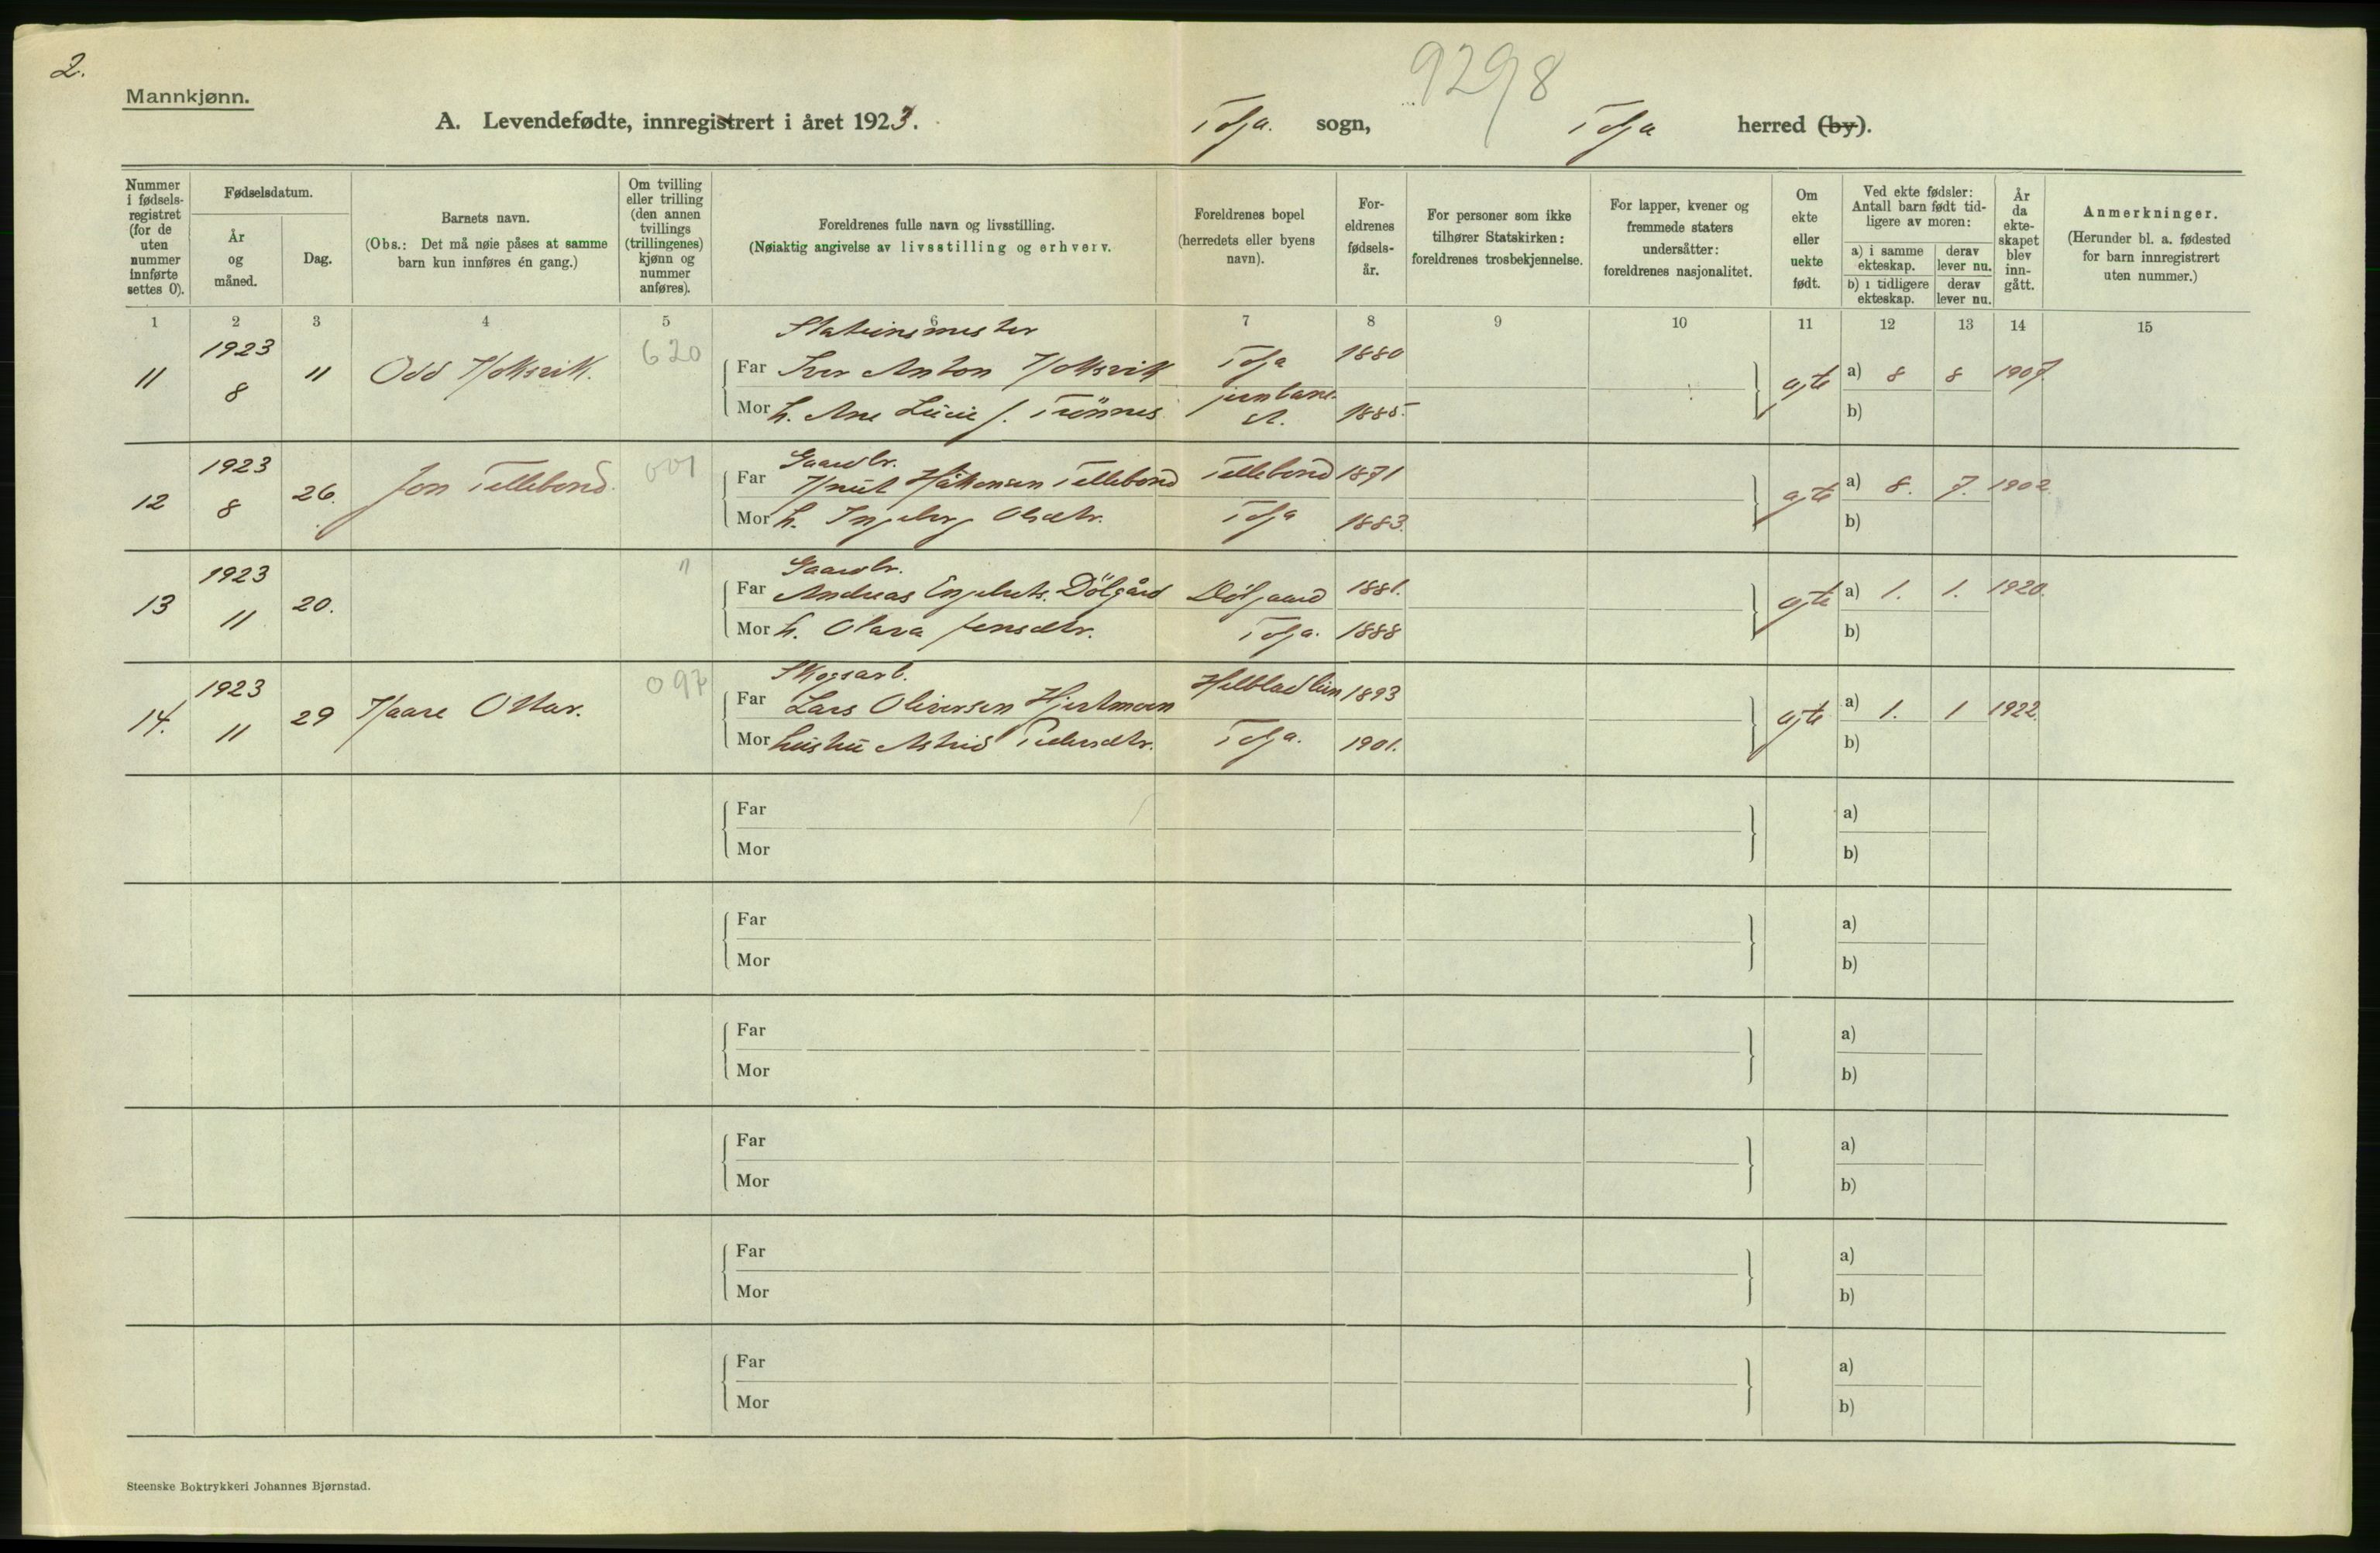 2.
Mannkjønn.
9298
A. Levendefødte, innregistrert i året 1923.
Tolga. sogn, Tolga herred (by).
Nummer i fødsels-registret (for de uten nummer innførte settes 0).
Fødselsdatum.
År og måned.
Dag.
Barnets navn.
(Obs.: Det må nøie påses at samme barn kun innføres én gang.)
Om tvilling eller trilling (den annen tvillings (trillingenes) kjønn og nummer anføres).
Foreldrenes fulle navn og livsstilling.
(Nøiaktig angivelse av livsstilling og erhverv.
Foreldrenes bopel (herredets eller byens navn).
For-eldrenes fødsels-år.
For personer som ikke tilhører Statskirken: foreldrenes trosbekjennelse.
For lapper, kvener og fremmede staters undersåtter: foreldrenes nasjonalitet.
Om ekte eller uekte født.
Ved ekte fødsler: Antall barn født tid-ligere av moren:
a) i samme ekteskap.
derav lever nu.
b) i tidligere ekteskap.
derav lever nu.
År da ekte-skapet blev inn-gått.
Anmerkninger.
(Herunder bl. a. fødested for barn innregistrert uten nummer.)
1 2 3 4 5 6 7 8 9 10 11 12 13 14 15
Stationsmester
11 1923 8 11 Odd Hoksvik. 620 Far Iver Anton Hoksvik Tolga 1880 egte a) 8 8 1907.
Mor h. Ane Lucie f. Trönnes jernbane- st. 1885. b)
Gaardbr.
12 1923 8 26. Jon Tellebond. 001 Far Knut Håkensen Tellebond Tellebond 1871 egte a) 8. 7. 1902.
Mor h. Ingeborg Olsdtr. Tolga 1883. b)
Gaardbr.
13 1923 11 20. " Far Andreas Engebrets. Dölgård Dölgaard 1881. egte a) 1. 1. 1920.
Mor h. Olava Jensdtr. Tolga. 1888 b)
Skogsarb.
14. 1923 11 29 Kaare Ottar. 097 Far Lars Oliversen 1893 egte a) 1. 1 1922.
Mor hustru Astrid Pedersdtr. Tolga. 1901. b)
Far a)
Mor b)
Far a)
Mor b)
Far a)
Mor b)
Far a)
Mor b)
Far a)
Mor b)
Far a)
Mor b)
Steenske Boktrykkeri Johannes Bjørnstad.